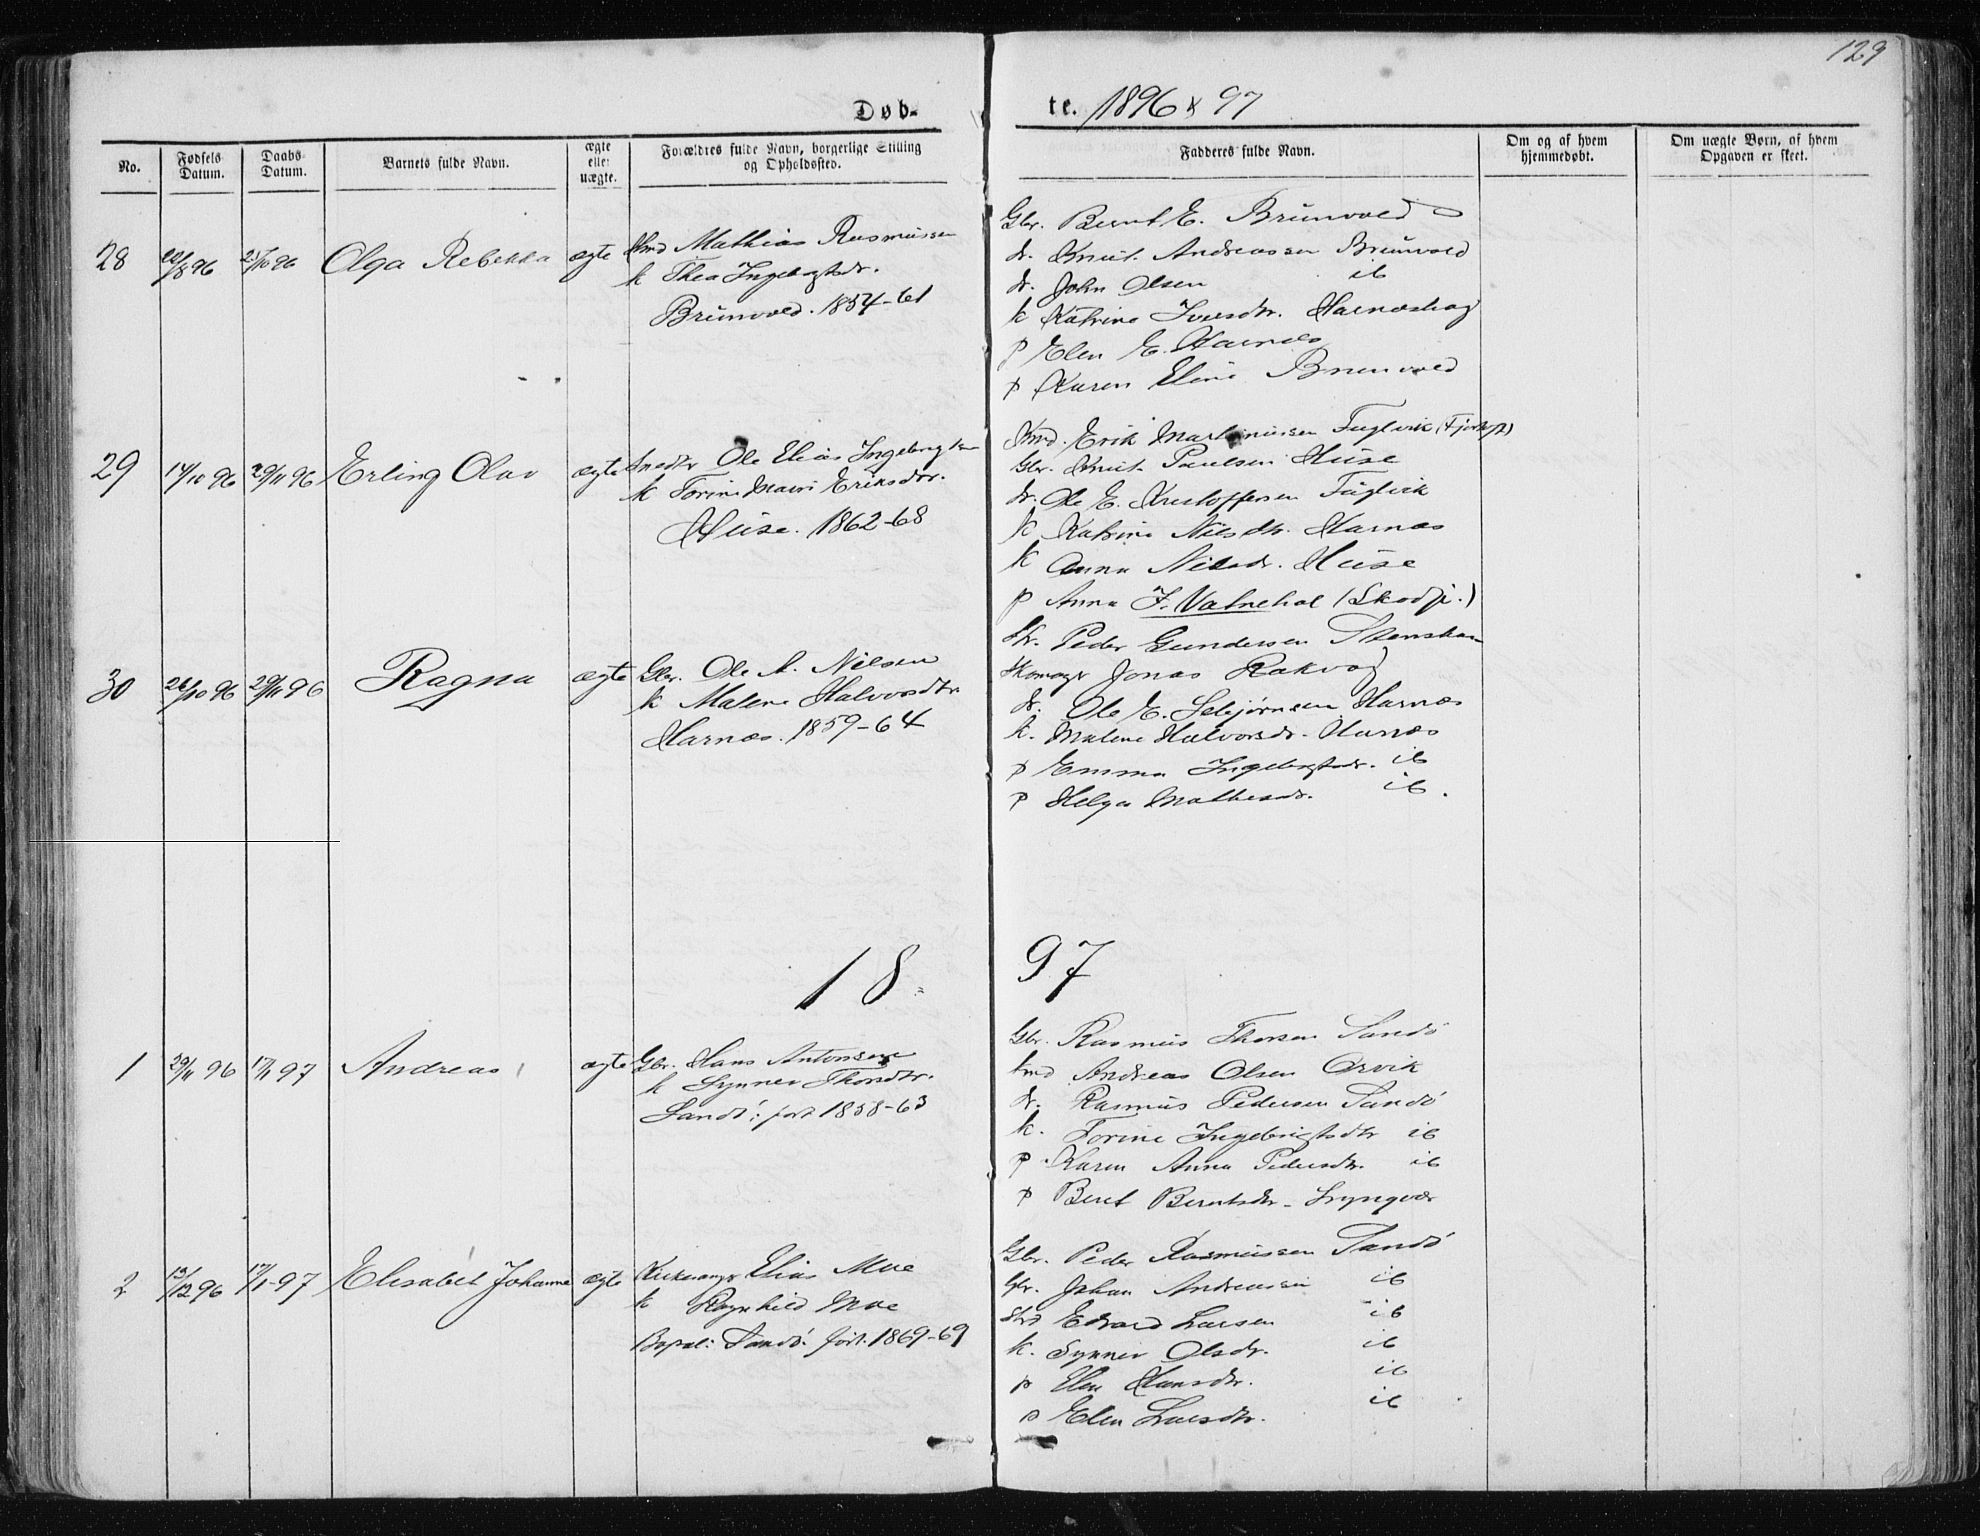 129
Døb-
te. 1896 & 97
No.
Fødsels Datum.
Daabs Datum.
Barnets fulde Navn.
ægte eller uægte.
Forældres fulde Navn, borgerlige Stilling
og Opholdssted.
Fadderes fulde Navn.
Om og af hvem
hjemmedøbt.
Om uægte Børn, af hvem
Opgaven er skeet.
28 20/8 96 25/10 96 Olga Rebekka ægte Hmd Mathias Rasmussen
k Thea Ingebrgtsdr.
Brunvold. 1854-61
Gbr. Bernt E. Brunvold
dr. Knut Andreassen Brunvold
dr. John Olsen ib
k Katrine Iversdtr. Harneshag
p Elen E. Harnes
p Karen Eline Brunvold
29 14/10 96 29/11 96 Erling Olav ægte Inedtr Ole Elias Ingebrigtsen
k Torine Marie Eriksdtr.
Huse. 1862-68
Kmd. Erik Martinussen Fuglvik (Fjørtoft)
Gbr. Knut Paulsen Huse
dr. Ole E. Kristoffersen Fuglvik
k Katrine Nilsdtr. Harnes
k Anna Nilsdr. Huse
p Anna J. Vatnehol (Skodje.)
30 26/10 96 29/11 96 Ragna ægte Gbr. Ole A. Nilsen
k Malene Halvorsdtr
Harnes. 1859-64
Str. Peder Gundersen Stenshan
Skomager Jonas Rakvag
dr. Ole E. Sebjørnsen Harnes
k. Malene Halvorsdr. Harnes
p Emma Ingebrgtsdr. ib
p Helga Mathiasdr. ib.
18
97
1 29/11 96 17/1 97 Andreas ægte Gbr. Hans Antonsen
k Synnev Thorsdtr.
Sandø: født 1858-63
Gbr. Rasmus Thorsen Sandø
kmd Andreas Olsen Orvik
dr. Rasmus Pedersen Sandø
k. Torine Ingebrigtsdtr ib
p. Karen Anna Pedersdtr. ib
p Beret Berntsdtr - Lyngvær
2 13/12 96 17/1-97 Elisabet Johanne ægte Kirkesanger Elias Moe
k Ragnhild Moe
Bopæl: Sandø. født. 1869-69
Gbr. Peder Rasmussen Sandø
Gbr. Johan Andreassen ib
Std Edvard Larsen ib
k. Synnev Olsdr. ib
p Elen Hansdtr. ib
p Elen Larsdtr. ib